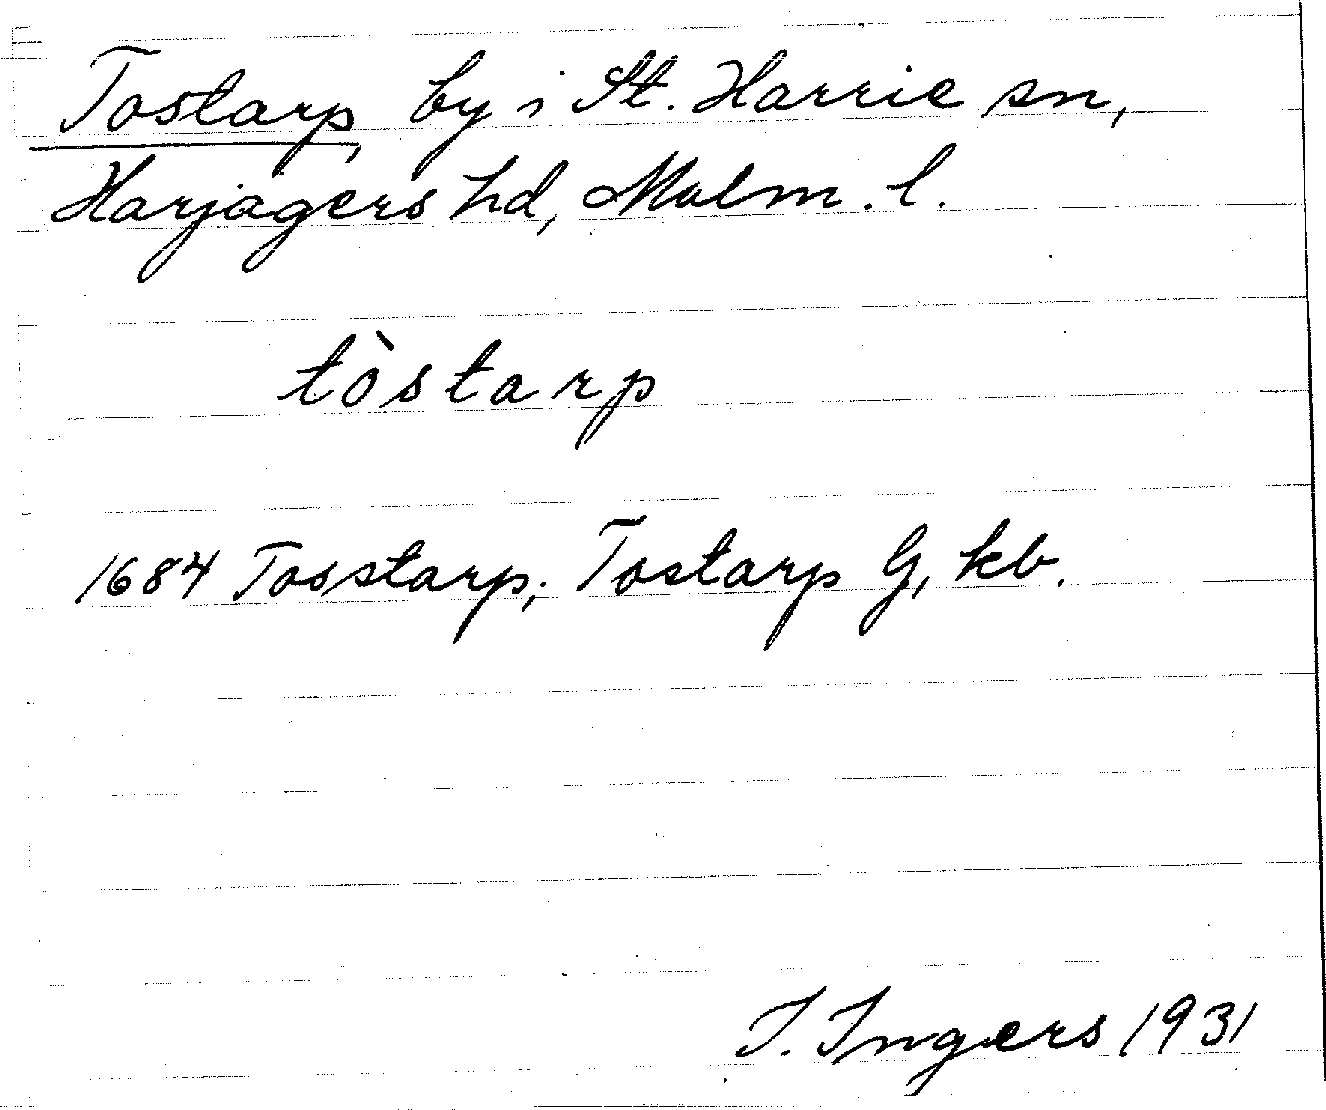 Tostarp, by i St. Harrie sn,
Harjagers hd, Malm. l.
tòstarp
1684 Tosstarp; Tostarp G, kb.
I. Ingers 1931